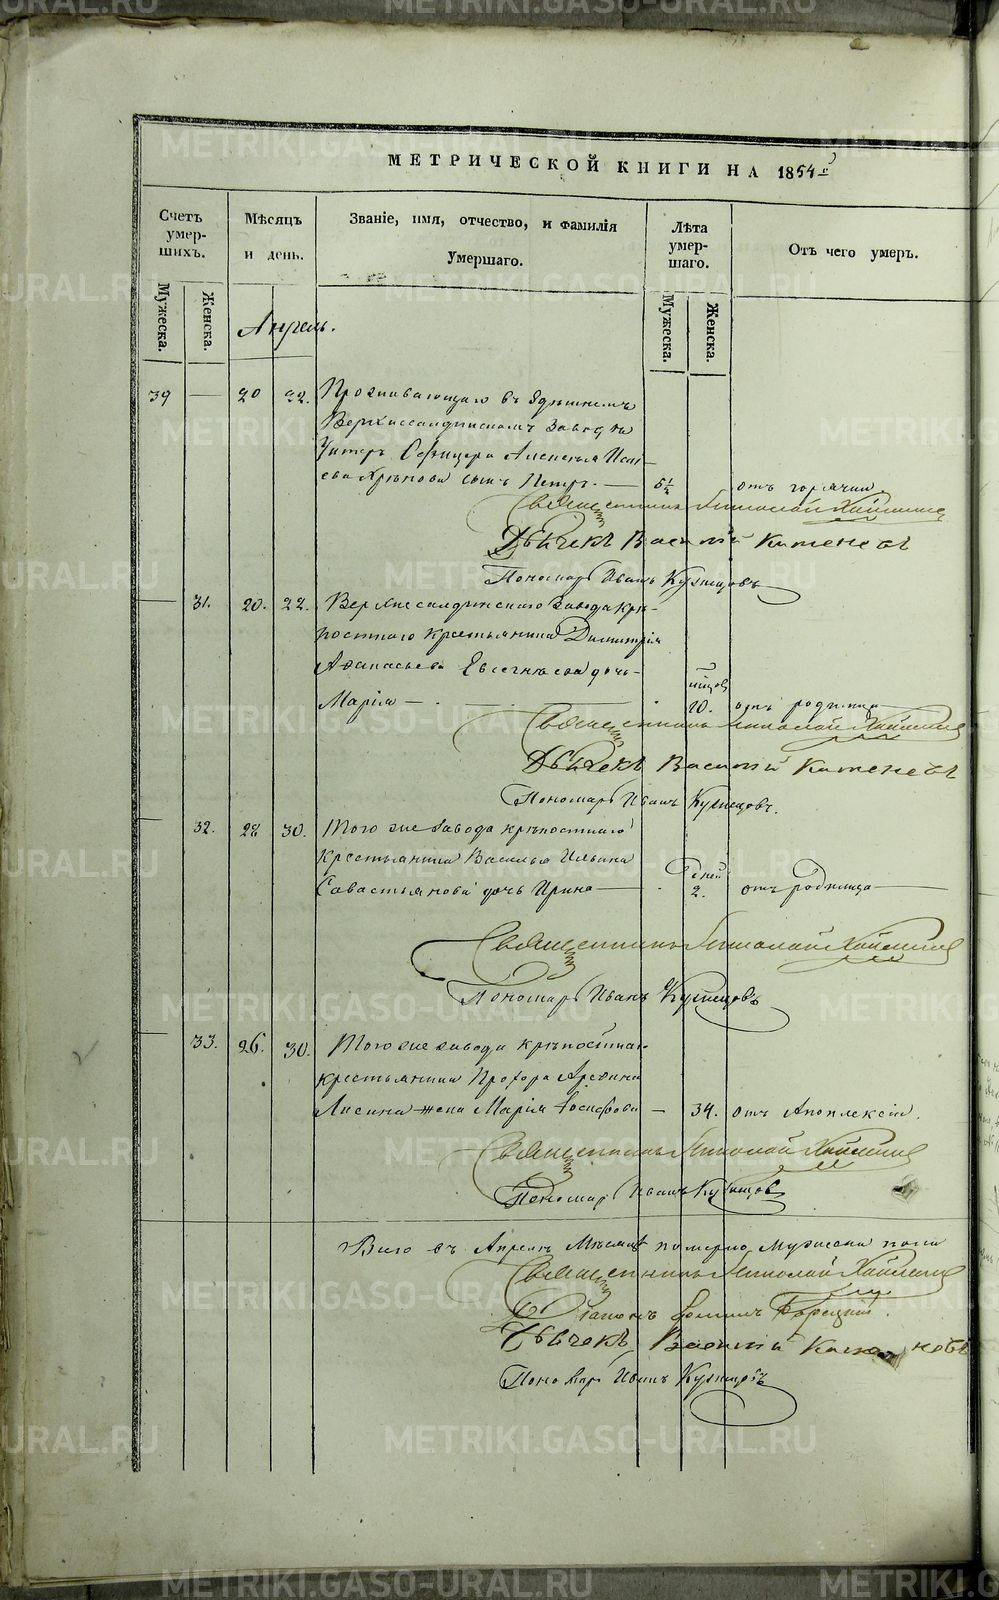 МЕТРИЧЕСКОЙ КНИГИ НА 1854 г
Счетъ умер- шихъ.
Мѣсяцъ и день.
Званіе, имя, отчество, и фамилія Умершаго.
Лѣта умер- шаго.
Отъ чего умеръ.
Мужеска.
Женска.
Мужеска.
Женска.
Апрель.
39 — 20 22. Проживающаго въ здешнемъ
Верхнесалдинскомъ заводѣ
Унтеръ Офицера Алексѣя
сынъ Петръ. — 5½ отъ горячки
Священникъ Николай
Дьячекъ Василій Катеневъ
Пономарь Иванъ Кузнецовъ
— 31. 20. 22. Верхнесалдинскаго завода крѣ-
постнаго крестьянина Димитрія
Аѳанасьева Евсегнѣева дочь
Марія — 10. отъ родимца
Священникъ Николай
Дьячекъ Василій Катеневъ
Пономарь Иванъ Кузнецовъ.
— 32. 28 30. Того же завода крѣпостнаго
крестьянина Василья Ильина
Савастьянова дочь Ирина — дней 2. отъ родимца —
Священникъ Николай
Пономарь Иванъ Кузнецовъ
— 33. 26. 30. Того же завода крѣпостнаго
крестьянина Прохора
Лисина жена Марія Іосифова — 34. отъ Апоплексіи.
Священникъ Николай
Пономарь Иванъ Кузнецовъ
Всего въ Апрелѣ Мѣсяцѣ померло Мужеска пола
Священникъ Николай
Діаконъ
Дьячекъ Василій Катеневъ
Пономарь Иванъ Кузнецовъ
METRIKI.GASO-URAL.RU